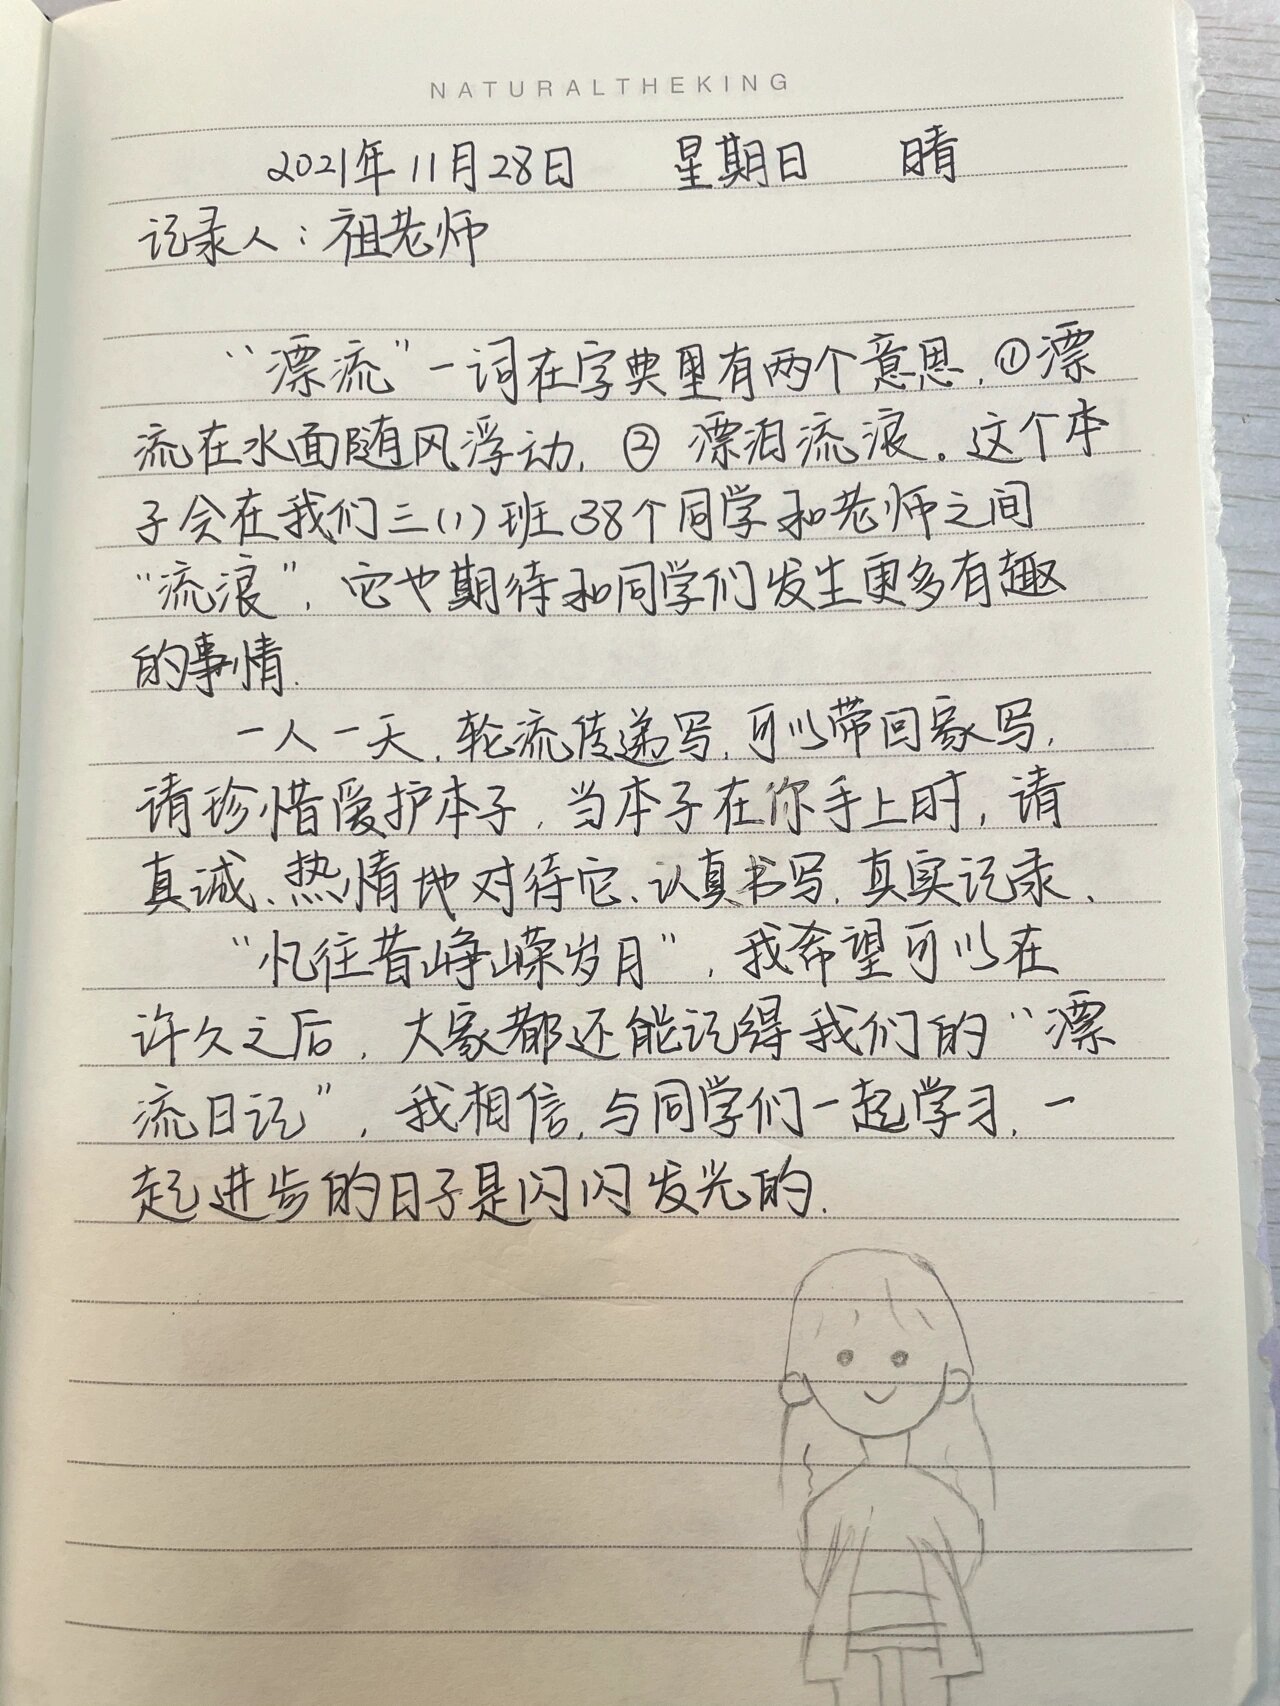 NATURALTHEKING
2021年11月28日 星期日 晴
记录人：祖老师
“漂流”一词在字典里有两个意思，①漂
流在水面随风浮动，② 漂泊流浪。这个本
子会在我们三(1)班38个同学和老师之间
“流浪”，它也期待和同学们发生更多有趣
的事情.
一人一天，轮流传递写，可以带回家写，
请珍惜爱护本子，当本子在你手上时，请
真诚、热情地对待它、认真书写，真实记录、
“忆往昔峥嵘岁月”，我希望可以在
许久之后，大家都还能记得我们的“漂
流日记”，我相信，与同学们一起学习，一
起进步的日子是闪闪发光的.